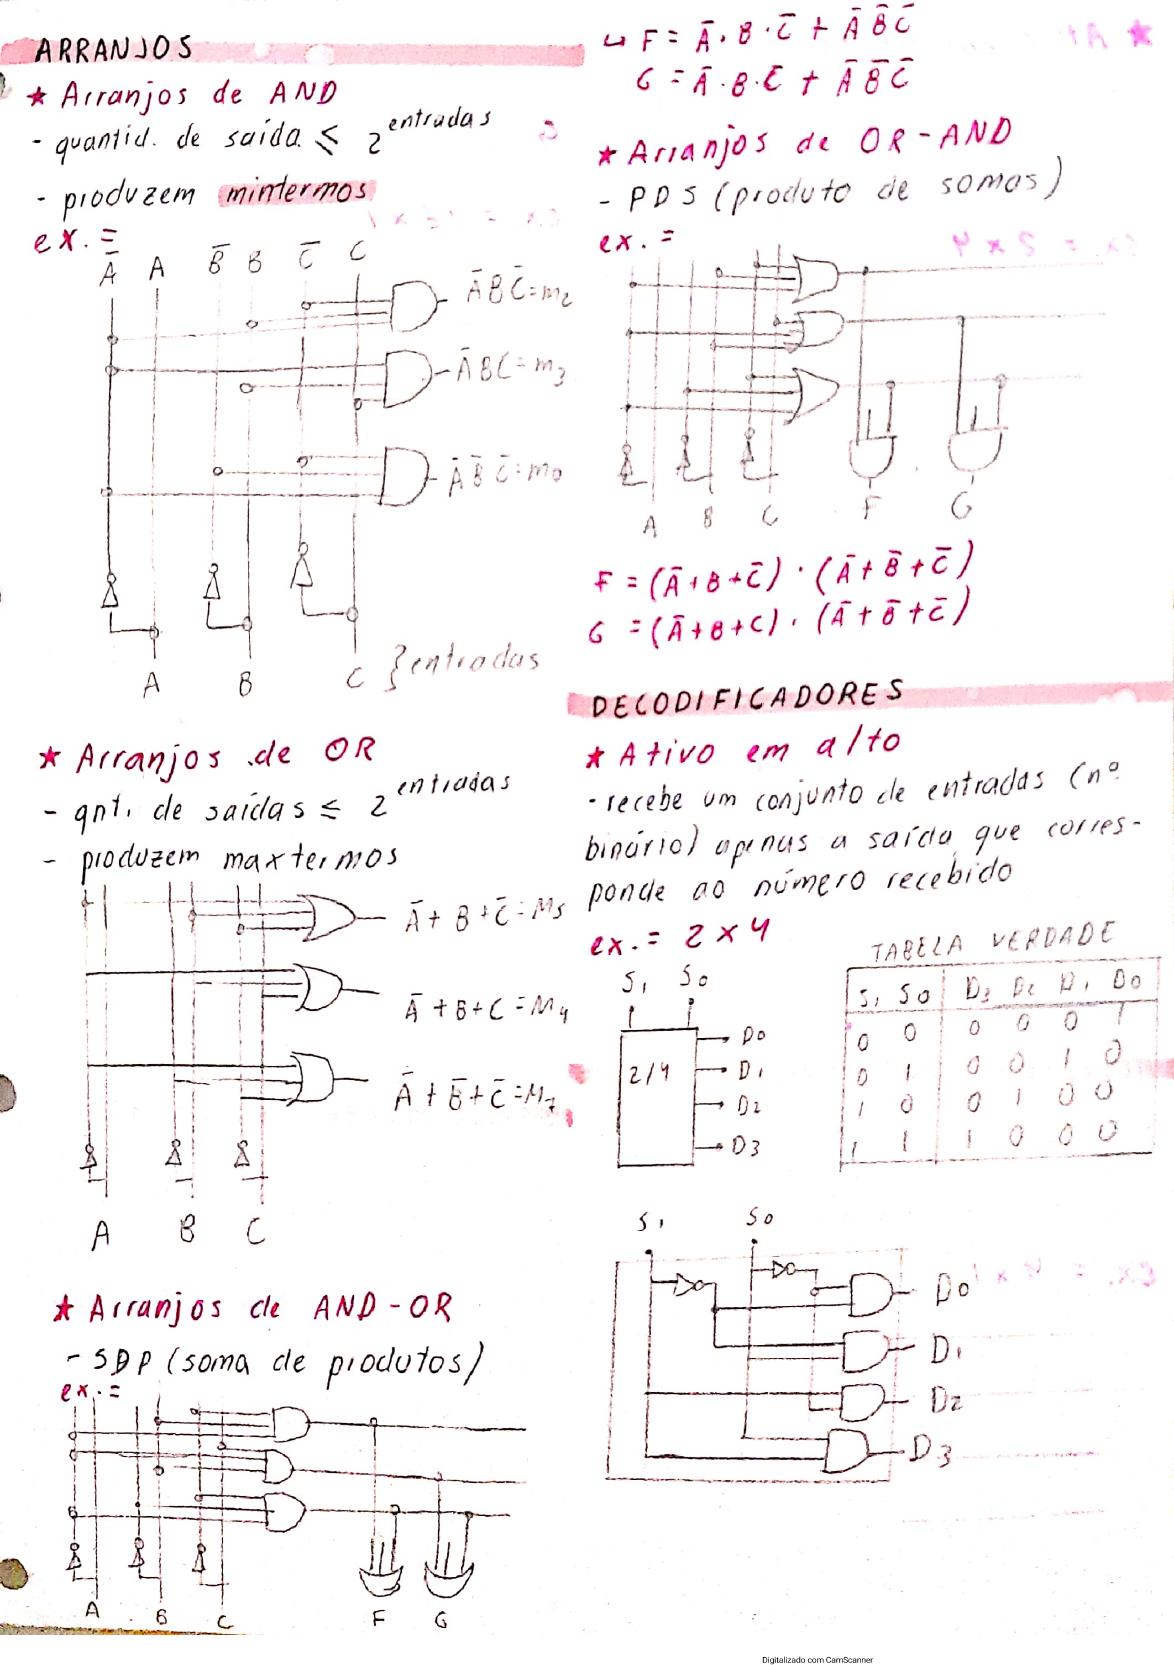 ARRANJOS
★ Arranjos de AND
- quantid. de saída ≤ 2^entradas
- produzem mintermos
ex. =
Ā A B̄ B C̄ C
ĀBC̄ = m2
ĀBC = m3
ĀB̄C̄ = m0
A B C } entradas
★ Arranjos de OR
- qnt. de saídas ≤ 2^entradas
- produzem maxtermos
Ā + B + C̄ = M5
Ā + B + C = M4
Ā + B̄ + C̄ = M7
A B C
★ Arranjos de AND-OR
- SDP (soma de produtos)
ex. =
A B C F G
↳ F = Ā · B · C̄ + Ā B̄ C̄
G = Ā · B · C + Ā B̄ C̄
★ Arranjos de OR-AND
- PDS (produto de somas)
ex. =
A B C F G
F = (Ā + B + C̄) · (Ā + B̄ + C̄)
G = (Ā + B + C) · (Ā + B̄ + C̄)
DECODIFICADORES
★ Ativo em alto
- recebe um conjunto de entradas (nº
binário) apenas a saída que corres-
ponde ao número recebido
ex. = 2 x 4
S1 S0
2/4
D0
D1
D2
D3
TABELA VERDADE
S1 S0 D3 D2 D1 D0
0 0 0 0 0 1
0 1 0 0 1 0
1 0 0 1 0 0
1 1 1 0 0 0
S1 S0
D0
D1
D2
D3
Digitalizado com CamScanner